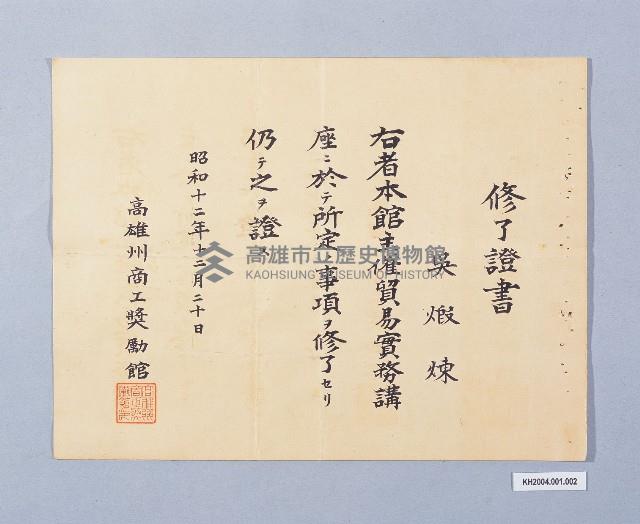 修了證書
吳煅煉
右者本館主催貿易實務講
座ニ於テ所定ノ事項ヲ修了セリ
仍テ之ヲ證ス
昭和十二年十二月二十日
高雄州商工獎勵館
高雄市立歷史博物館
KAOHSIUNG MUSEUM OF HISTORY
KH2004.001.002